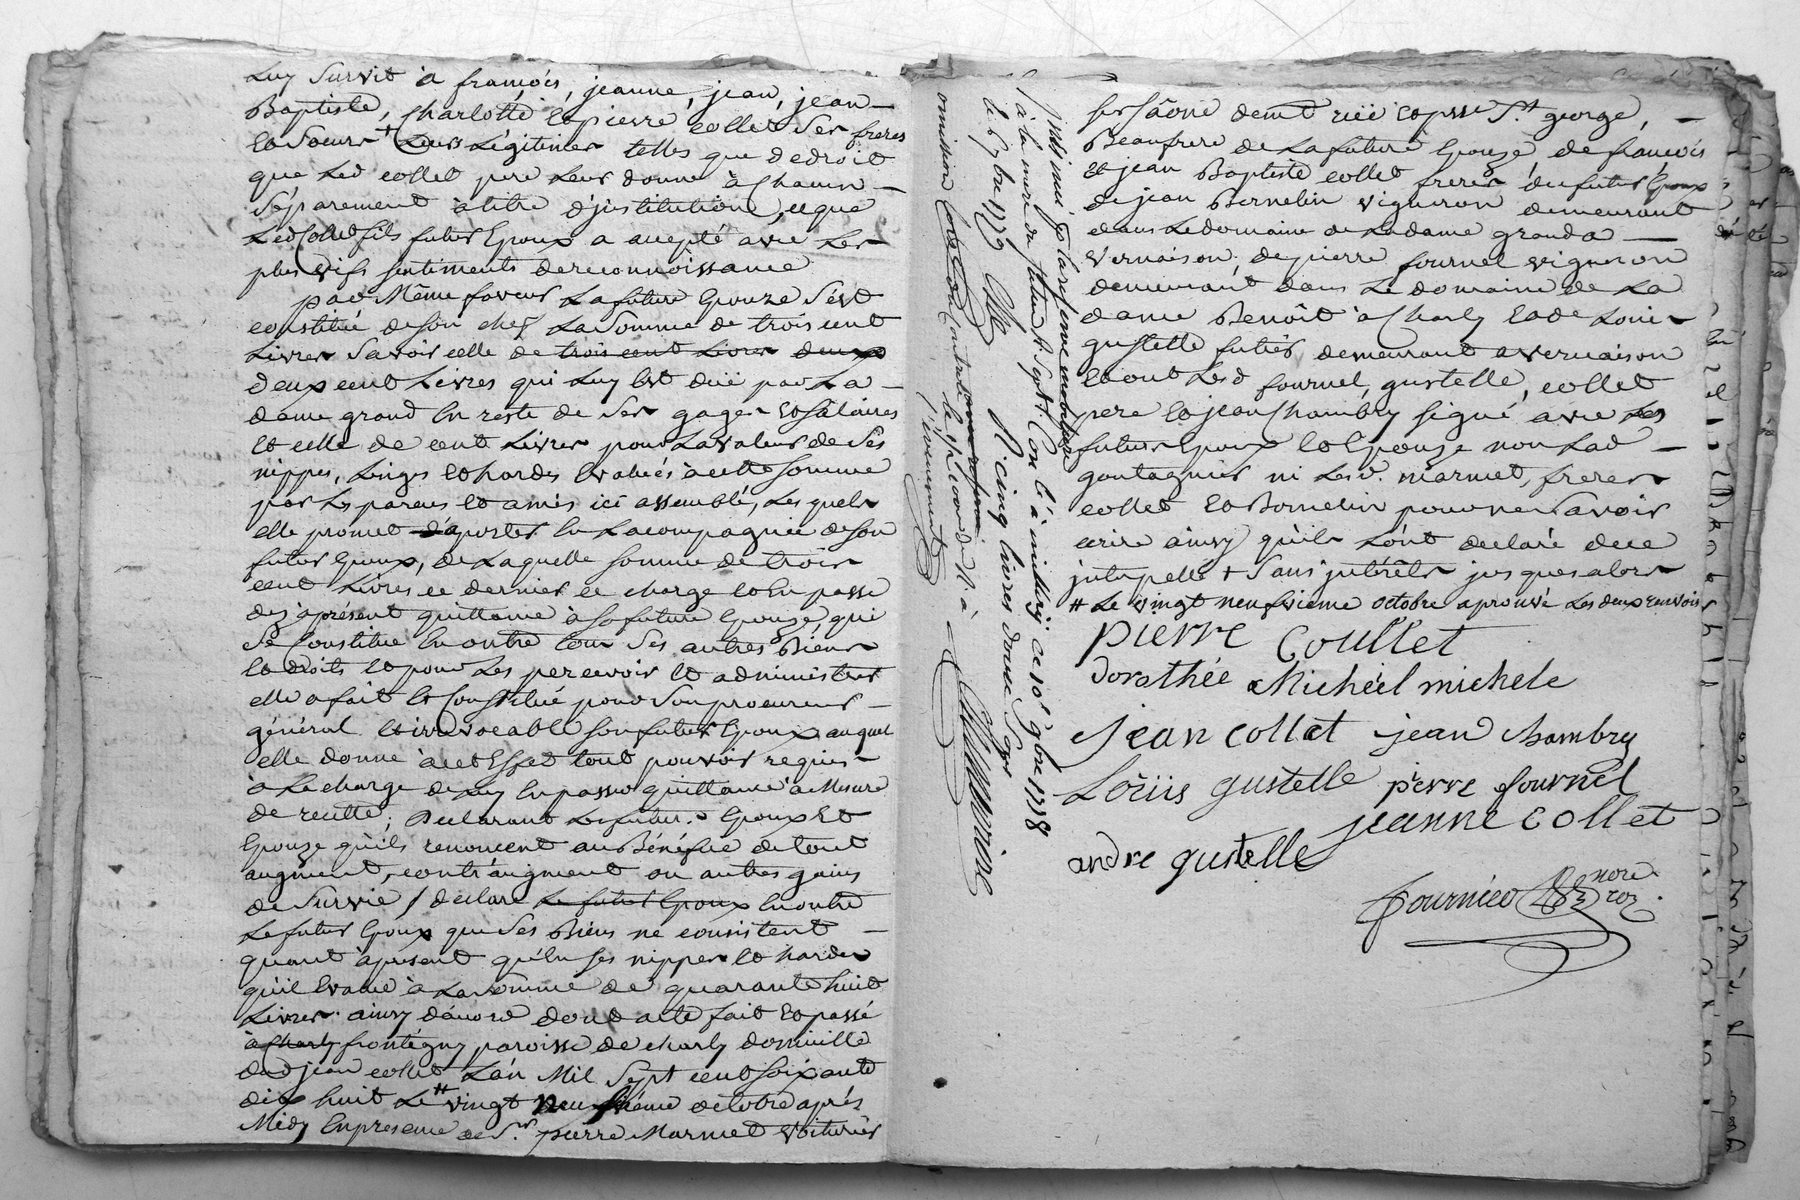 Luy Survit à françois, jeanne, jean, jean
Baptiste, Charlotte et pierre collet Ses freres
et Soeurs + Leurs Légitimes telles que de droit
que Led collet pere Leur donne à Chacun
Séparement à titre d'jnstitution, ce que
Led Collet fils futur Epoux a accepté avec Les
plus vifs sentiments de reconnoissance
par Même faveur La future Epouze S'est
constitué de son chef La Somme de trois cent
Livres Savoir celle de trois cent Livres deux
deux cent Livres qui Luy est deüe par La
dame grand En reste de Ses gages et Salaires
et celle de cent Livres pour La valeur de Ses
nippes, Linges et hardes Evalués à cette somme
par Les parens et amis ici assemblés, Les quels
elle promet d'aporter En La compagnie de son
futur Epoux, de Laquelle somme de trois
cent Livres ce dernier ce charge et En passe
dez àprésent quittance à sa future Epouze, qui
Se Constitue En outre tous Ses autres Biens
et droits et pour Les percevoir et administrer
elle a fait et Constitué pour Son procureur
général et irrévocable son futur Epoux auquel
elle donne à cet Effet tout pouvoir requis
à La charge de Luy En passer quittance à Mesure
de recette, Declarant Les futurs Epoux Et
Epouze qu'ils renoncent au Bénéfice de tout
augment, contr'augment ou autres gains
de Survie / declare Le futur Epoux En outre
Le futur Epoux que Ses Biens ne consistent
quant àprésent qu'En Ses nippes et hardes
qu'il Evalue à La Somme de quarante huit
Livres. ainsy d'acord dont acte fait et passé
à Charly frontigny paroisse de charly domicille
dud jean collet L'an Mil Sept cent soixante
dix huit Le # vingt neufvieme octobre après
Midy En presence de Sr. pierre Marmet voiturier
sur Sâone demt rüe et psse St. george,
Beaufrere de La future Epouze, de françois
et jean Baptiste collet freres du futur Epoux
de jean Bernelin vigneron demeurant
dans Le domaine de La dame grand a
Vernaison, de pierre fournel vigneron
demeurant dans Le domaine de La
dame Benoît à Charly et de Louis
gustelle futier demeurant a vernaison
et ont Lesd fournel, gustelle, collet
pere et jean Chambry signé avec Les
futurs Epoux et Epouze non Lad
gontagnier ni Led. marmet, freres
collet et Bornelin pour ne Savoir
ecrire ainsy qu'ils L'ont declaré de ce
jnterpellé + Sans jntérêts jusques alors
# Le vingt neufvieme octobre aprouvé Les deux renvois
pierre Coullet
dorothée Michéel michele
jean collet jean Chambry
Loüis gustelle pierre fournel
jeanne collet
andre gustelle
fournier nore roz